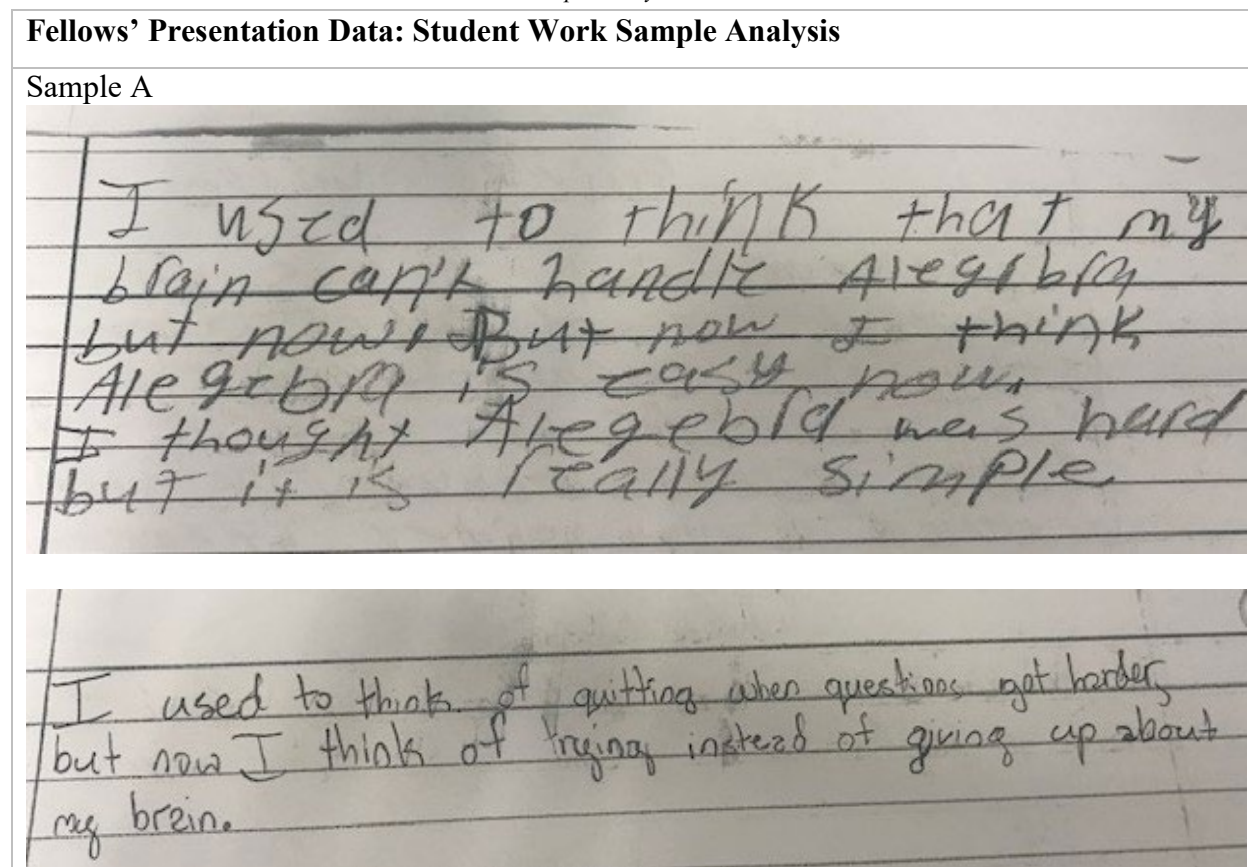 Fellows’ Presentation Data: Student Work Sample Analysis
Sample A
I used to think that my
brain can't handle Alegrbra
but now, But now I think
Alegebra is easy now.
I thought Alegebra was hard
but it is really simple
I used to think of quitting when questions got harder,
but now I think of trying instead of giving up about
my brain.